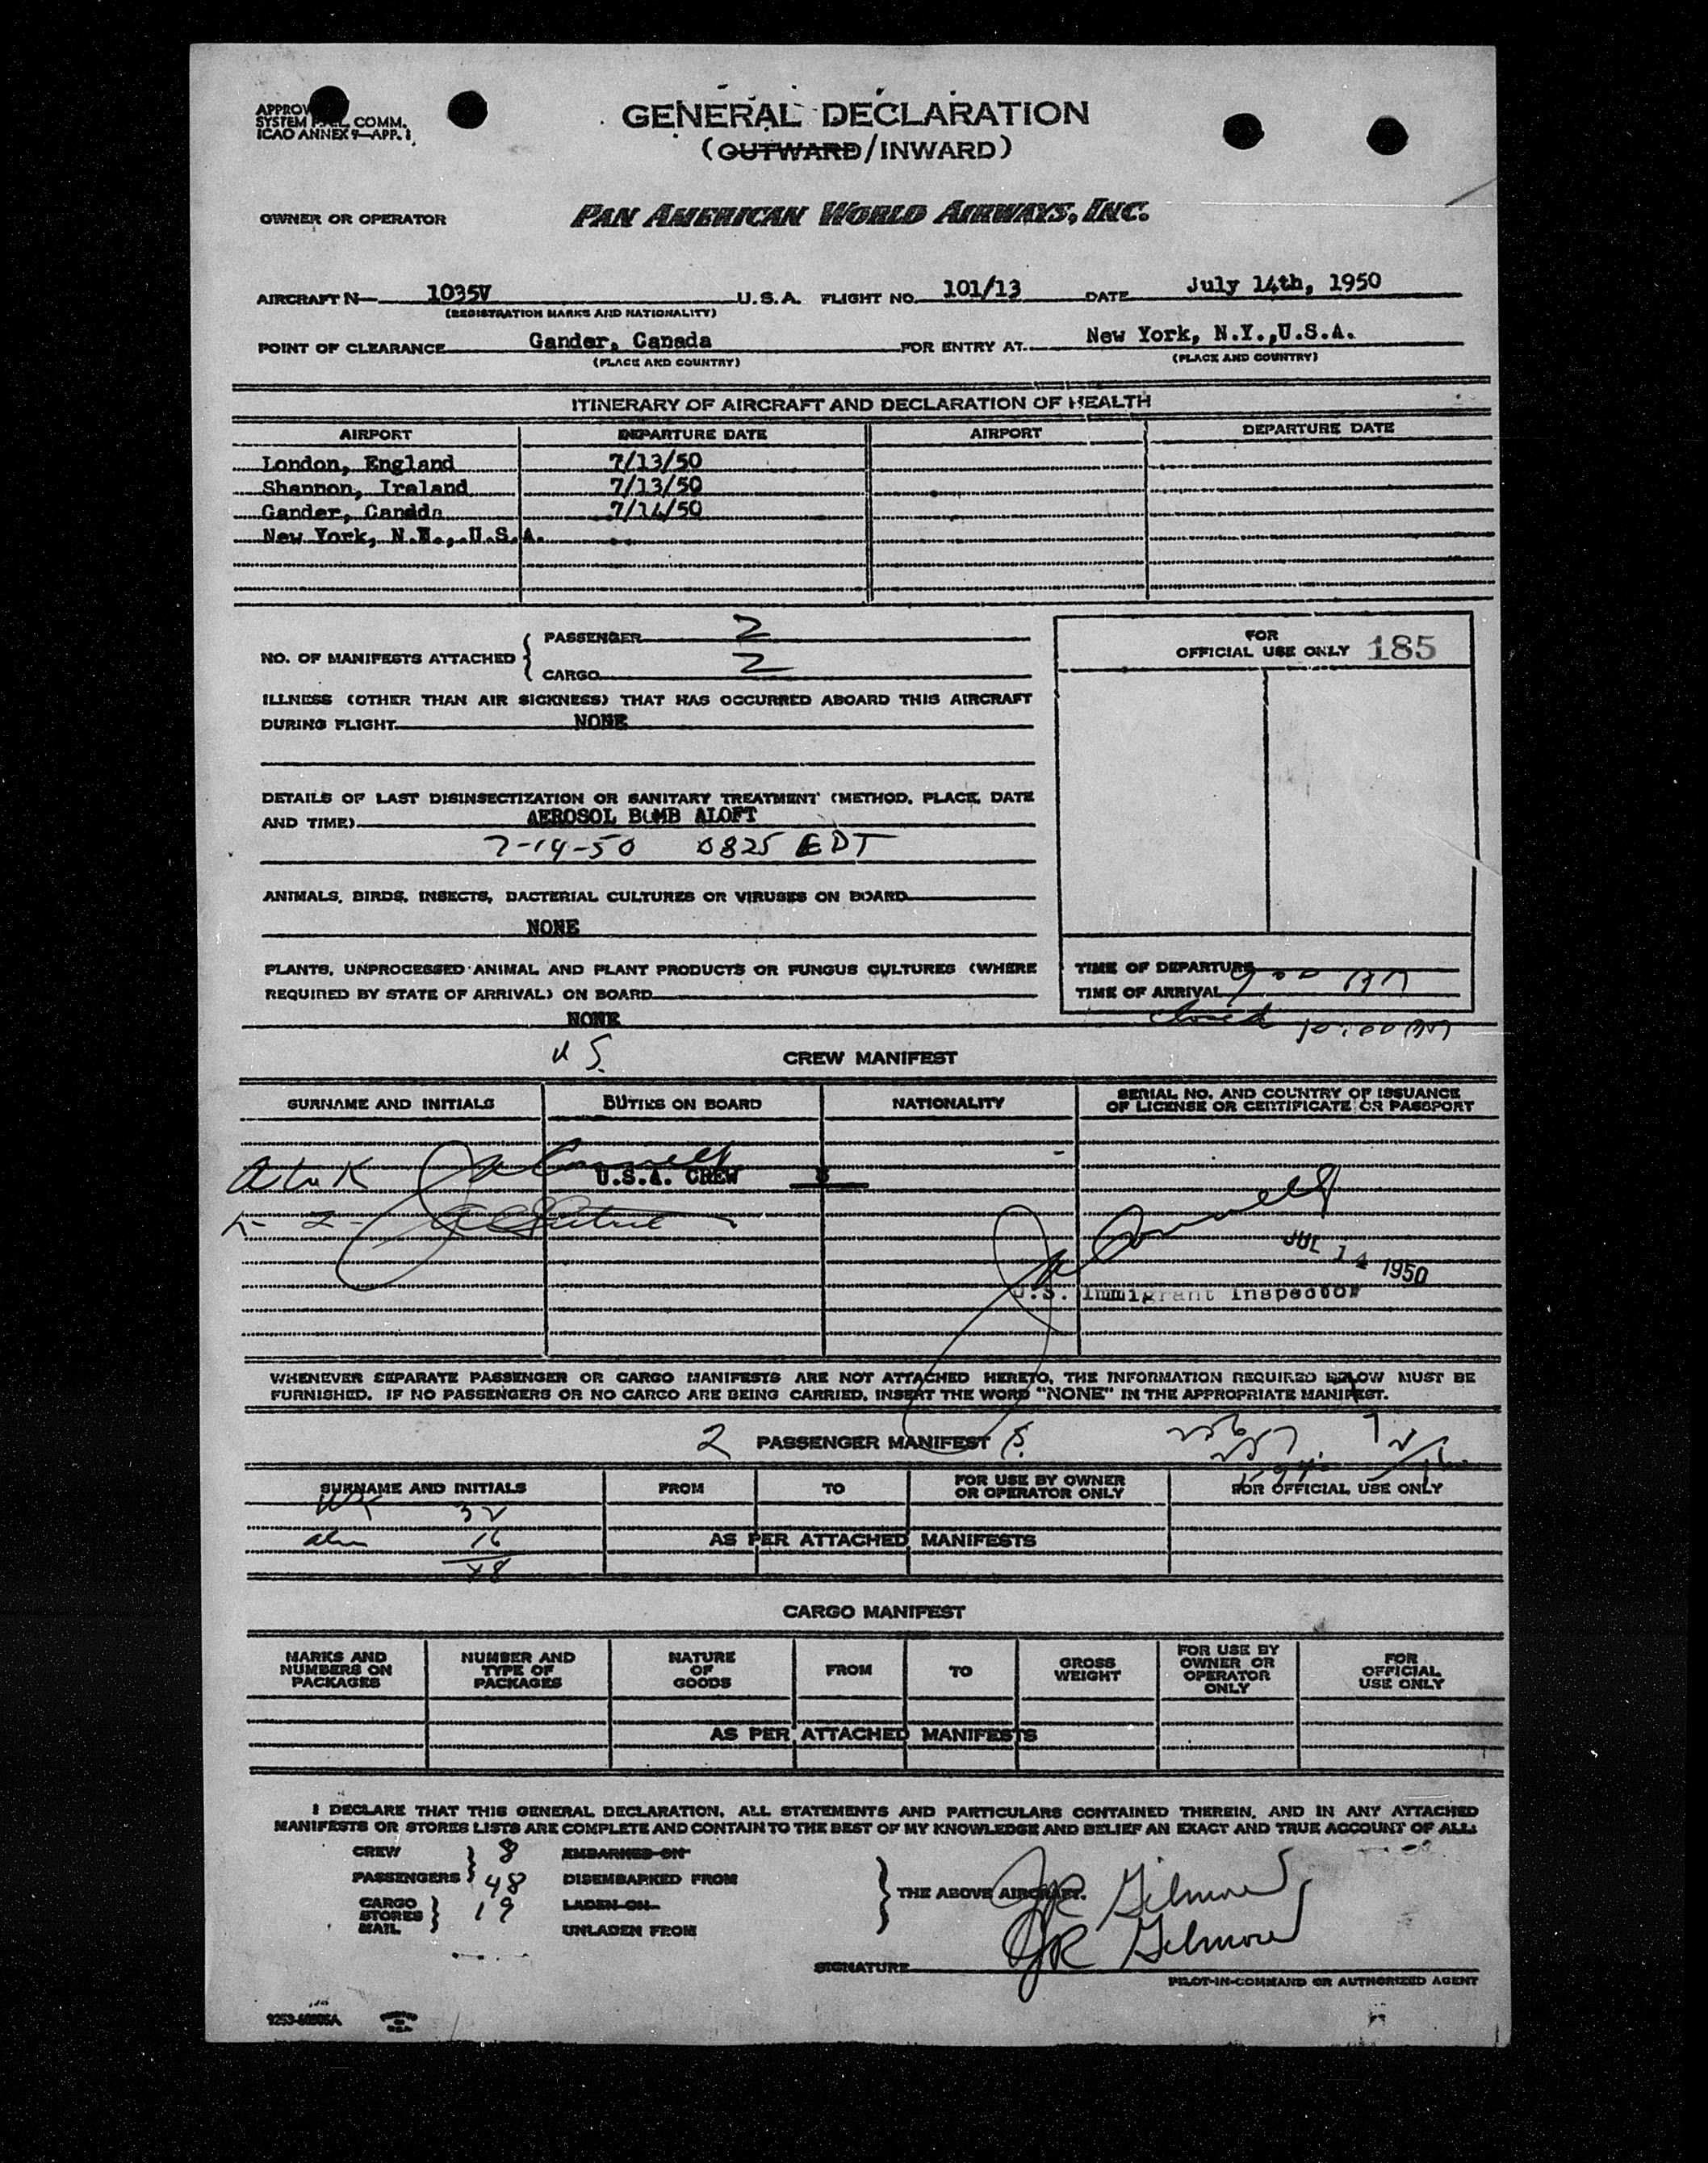 GENERAL DECLARATION
SYSTEM COMM.
ICAO ANNEX 9—APP. 1
(OUTWARD/INWARD)
OWNER OR OPERATOR PAN AMERICAN WORLD AIRWAYS, INC.
AIRCRAFT N— 1035V U.S.A. FLIGHT NO. 101/13 DATE July 14th, 1950
(REGISTRATION MARKS AND NATIONALITY)
POINT OF CLEARANCE Gander, Canada FOR ENTRY AT New York, N.Y.,U.S.A.
(PLACE AND COUNTRY) (PLACE AND COUNTRY)
ITINERARY OF AIRCRAFT AND DECLARATION OF HEALTH
AIRPORT DEPARTURE DATE AIRPORT DEPARTURE DATE
London, England 7/13/50
Shannon, Ireland 7/13/50
Gander, Canada 7/14/50
New York, N.Y., U.S.A.
NO. OF MANIFESTS ATTACHED { PASSENGER 2
CARGO 2
FOR
OFFICIAL USE ONLY 185
ILLNESS (OTHER THAN AIR SICKNESS) THAT HAS OCCURRED ABOARD THIS AIRCRAFT
DURING FLIGHT NONE
DETAILS OF LAST DISINSECTIZATION OR SANITARY TREATMENT (METHOD, PLACE, DATE
AND TIME) AEROSOL BOMB ALOFT
7-14-50 0825 EDT
ANIMALS, BIRDS, INSECTS, BACTERIAL CULTURES OR VIRUSES ON BOARD
NONE
PLANTS, UNPROCESSED ANIMAL AND PLANT PRODUCTS OR FUNGUS CULTURES (WHERE
REQUIRED BY STATE OF ARRIVAL) ON BOARD
NONE
TIME OF DEPARTURE
TIME OF ARRIVAL 9 00 AM
closed 10:00 AM
U S.
CREW MANIFEST
SURNAME AND INITIALS DUTIES ON BOARD NATIONALITY SERIAL NO. AND COUNTRY OF ISSUANCE
OF LICENSE OR CERTIFICATE OR PASSPORT
U.S.A. CREW 8
JUL 14 1950
U.S. Immigrant Inspector
WHENEVER SEPARATE PASSENGER OR CARGO MANIFESTS ARE NOT ATTACHED HERETO, THE INFORMATION REQUIRED BELOW MUST BE
FURNISHED. IF NO PASSENGERS OR NO CARGO ARE BEING CARRIED, INSERT THE WORD "NONE" IN THE APPROPRIATE MANIFEST.
2 PASSENGER MANIFEST
SURNAME AND INITIALS FROM TO FOR USE BY OWNER
OR OPERATOR ONLY FOR OFFICIAL USE ONLY
32
16
48
AS PER ATTACHED MANIFESTS
CARGO MANIFEST
MARKS AND
NUMBERS ON
PACKAGES
NUMBER AND
TYPE OF
PACKAGES
NATURE
OF
GOODS
FROM
TO
GROSS
WEIGHT
FOR USE BY
OWNER OR
OPERATOR
ONLY
FOR
OFFICIAL
USE ONLY
AS PER ATTACHED MANIFESTS
I DECLARE THAT THIS GENERAL DECLARATION, ALL STATEMENTS AND PARTICULARS CONTAINED THEREIN, AND IN ANY ATTACHED
MANIFESTS OR STORES LISTS ARE COMPLETE AND CONTAIN TO THE BEST OF MY KNOWLEDGE AND BELIEF AN EXACT AND TRUE ACCOUNT OF ALL:
CREW 8 EMBARKED ON
PASSENGERS 48 DISEMBARKED FROM
CARGO
STORES
MAIL
19
LADEN ON
UNLADEN FROM
THE ABOVE AIRCRAFT.
JR Gilmore
JR Gilmore
SIGNATURE
PILOT-IN-COMMAND OR AUTHORIZED AGENT